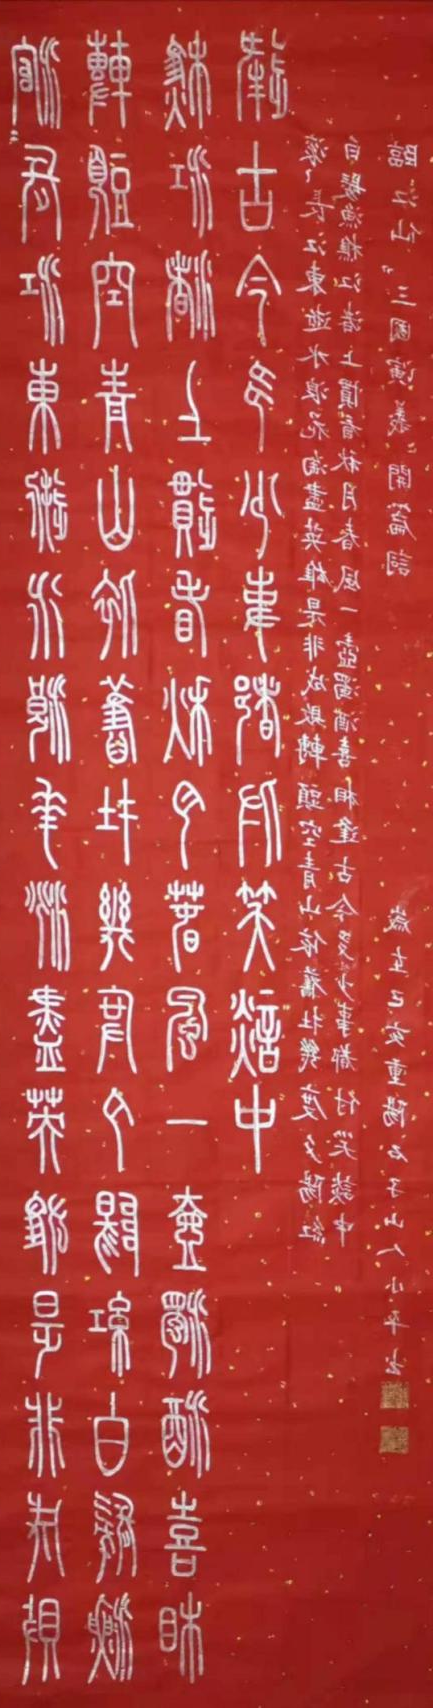 滚〻長江東逝水浪花淘盡英雄是非成敗
轉頭空青山依舊在幾度夕陽紅白髮漁
樵江渚上慣看秋月春風一壺濁酒喜相
逢古今多少事都付笑談中
滚〻長江東逝水浪花淘盡英雄是非成敗轉頭空青山依舊在幾度夕陽紅
白髮漁樵江渚上慣看秋月春風一壺濁酒喜相逢古今多少事都付笑談中
臨江仙《三國演義》開篇詞
歲在己亥重陽石子山人小平書